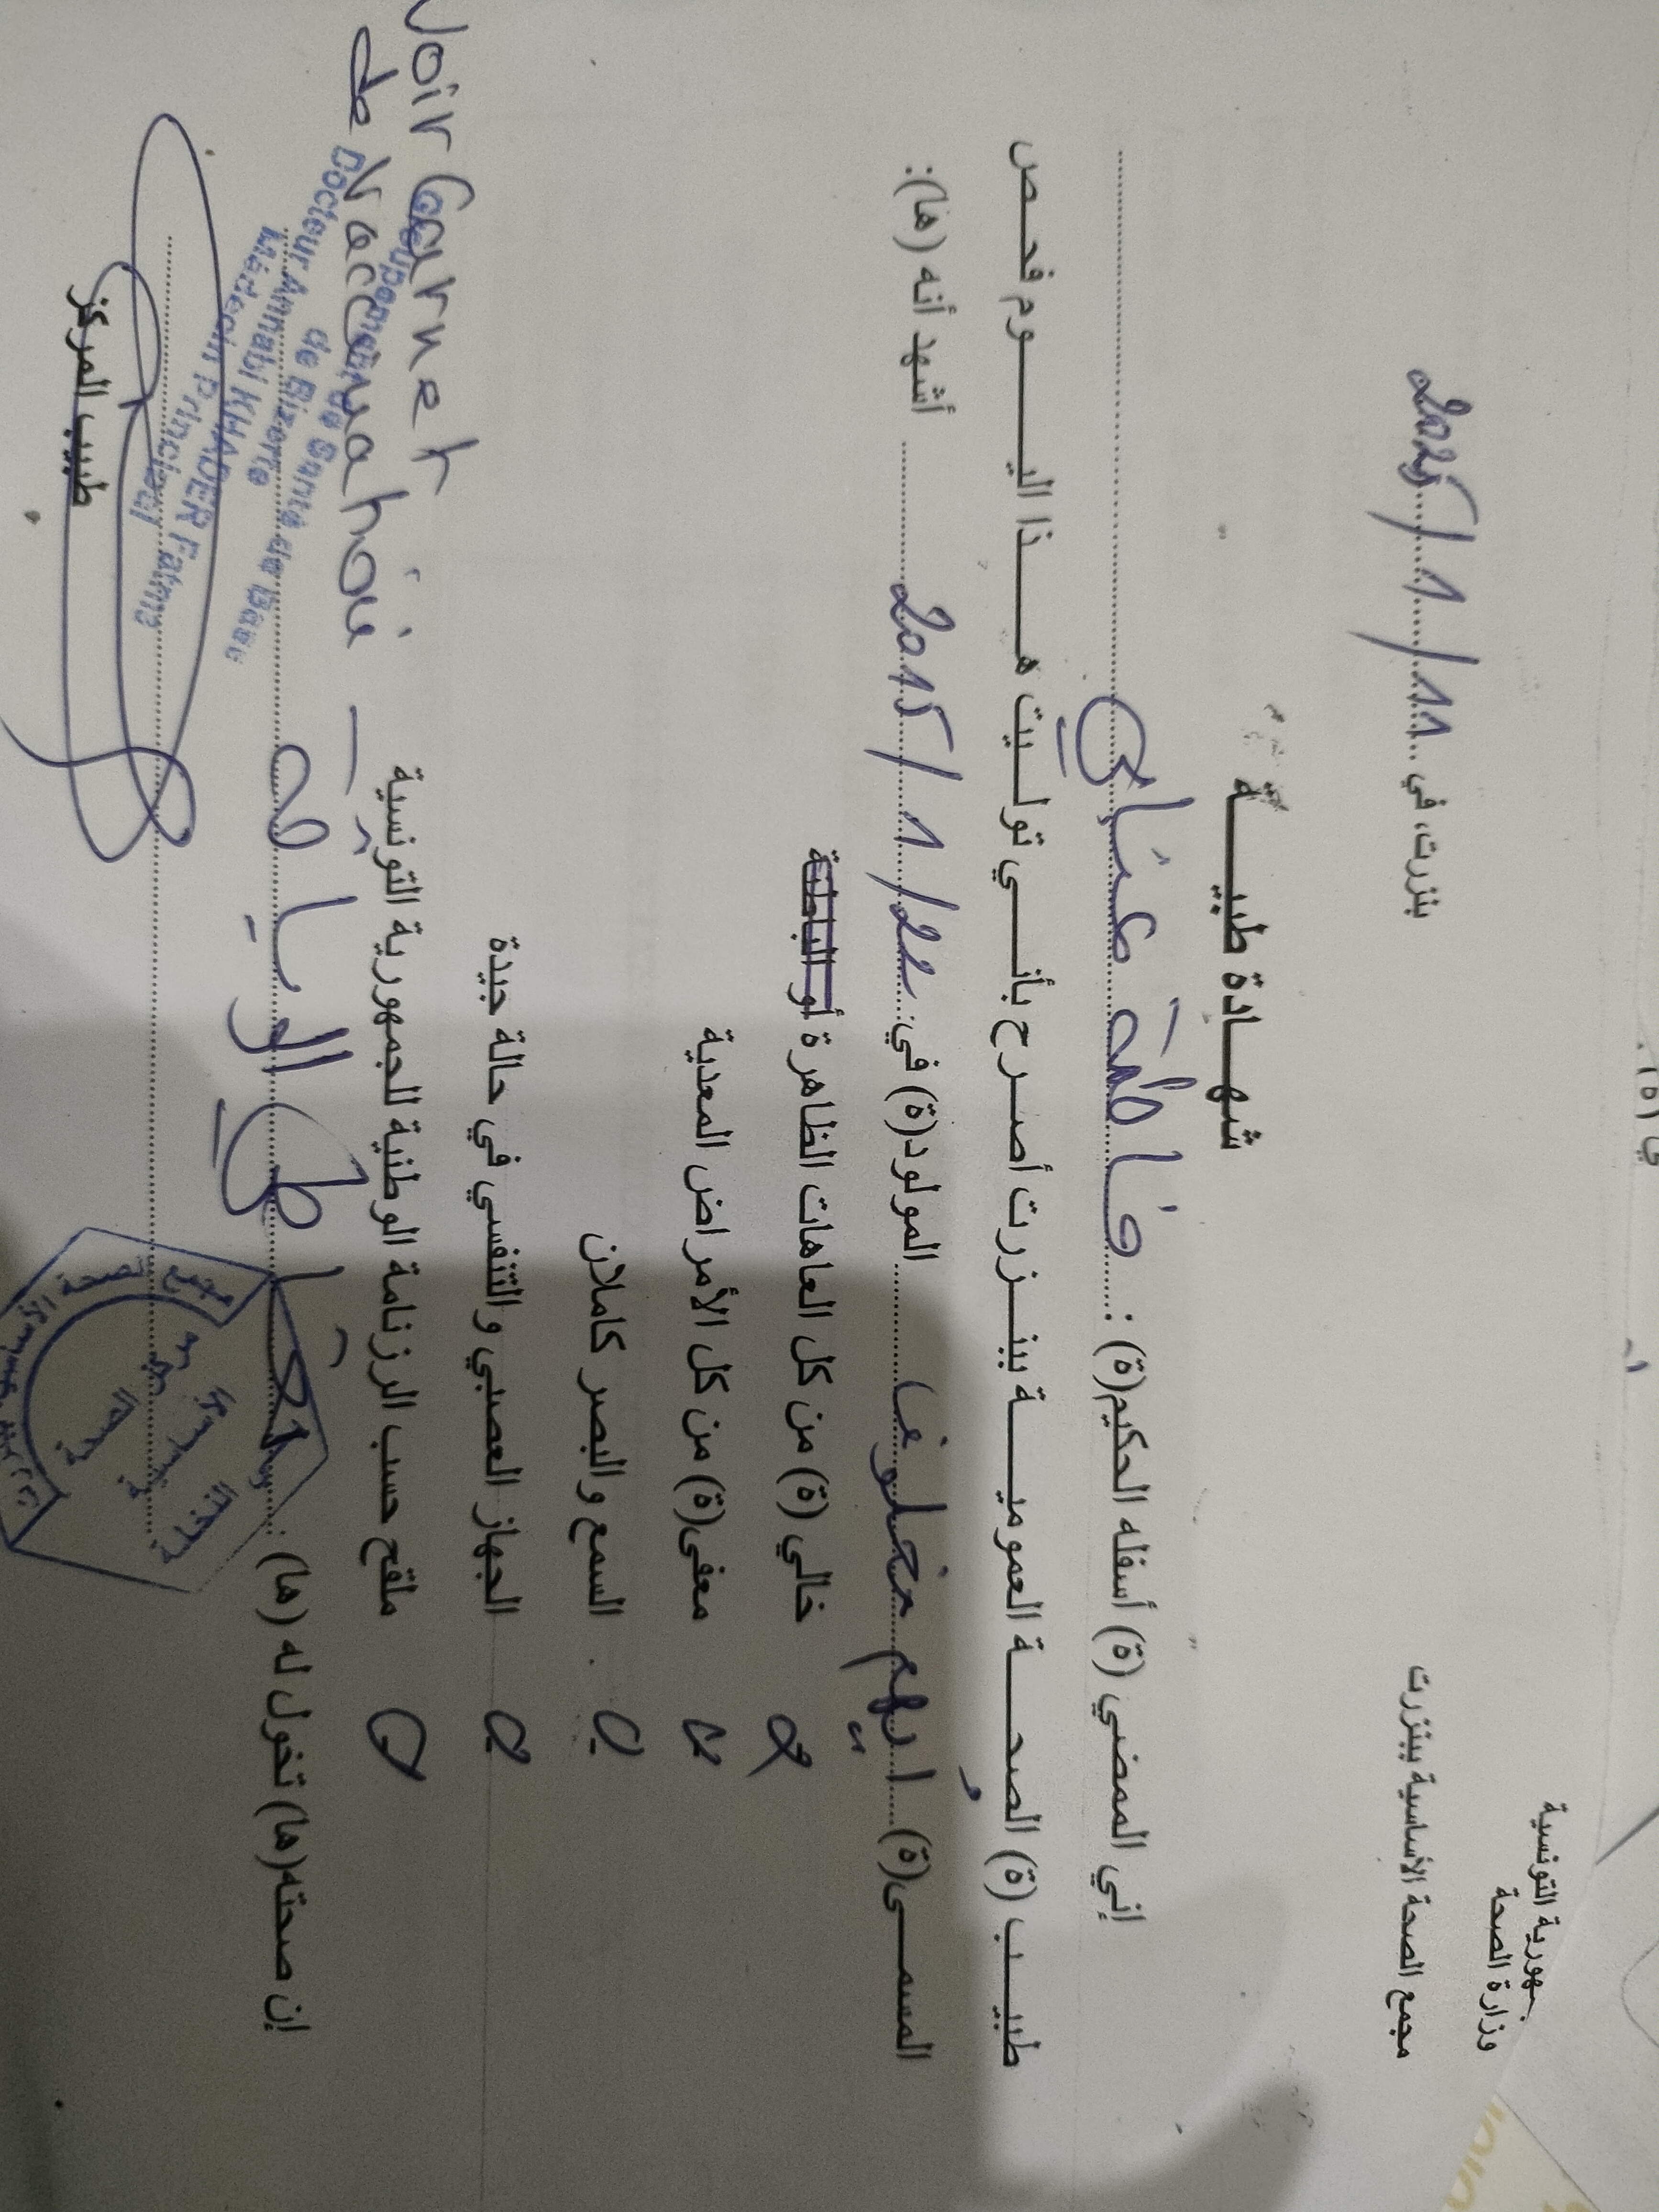 جمهورية التونسية
وزارة الصحة
مجمع الصحة الأساسية ببنزرت
بنزرت، في 11/1/2025
شهادة طبيــة
إني الممضي (ة) أسفله الحكيم(ة): فاطمة عنابي
طبيب (ة) الصحة العمومية ببنزرت أصرح بأنني توليت هذا اليوم فحص
المسمى(ة) ريهم مخلوف المولود(ة) في: 22/1/2015 أشهد أنه (ها):
خالي (ة) من كل العاهات الظاهرة أو الباطنة
معفى(ة) من كل الأمراض المعدية
السمع والبصر كاملان
الجهاز العصبي والتنفسي في حالة جيدة
ملقح حسب الرزنامة الوطنية للجمهورية التونسية
Voir Carnet de Vaccination
إن صحته(ها) تخول له (ها):
طبيب المركز
Groupement de Santé de Base
de Bizerte
Docteur Annabi KHADER Fatma
Médecin Principal
مجمع الصحة الأساسية
مركز
الصحة
الأساسية